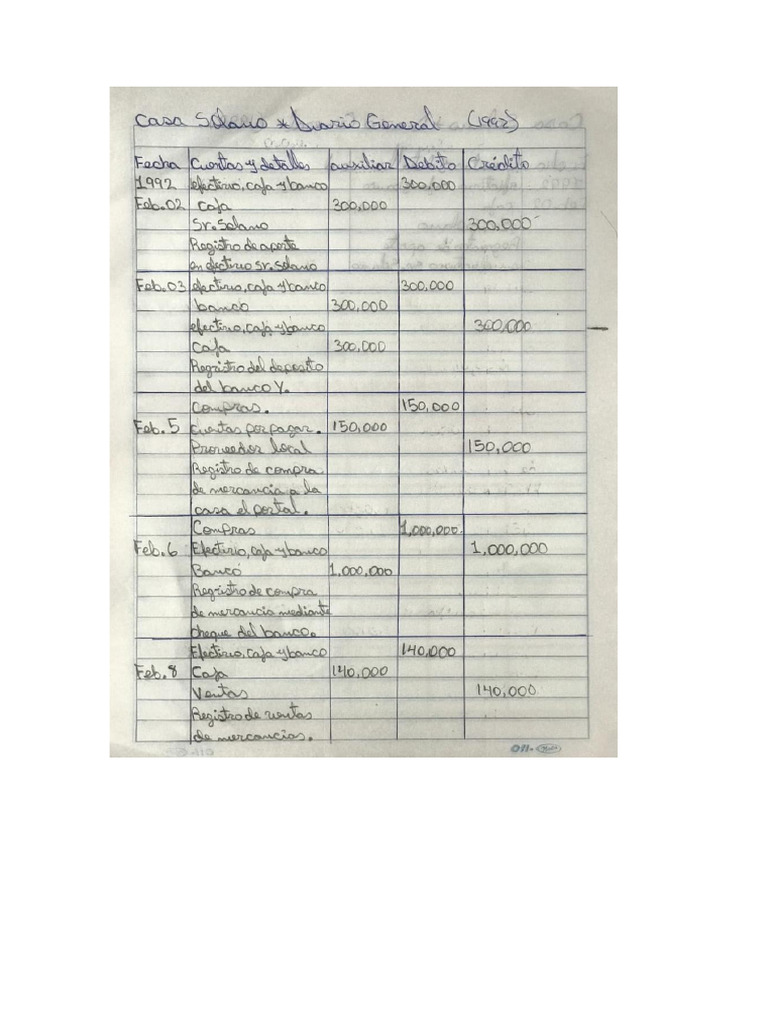 Casa Solano * Diario General (1992)
Fecha Cuentas y detalles auxiliar Debito Crédito
1992 efectivo, caja y banco 300,000
Feb. 02 caja 300,000
Sr. Solano 300,000
Registro de aporte
en efectivo Sr. Solano
Feb. 03 efectivo, caja y banco 300,000
banco 300,000
efectivo, caja y banco 300,000
Caja 300,000
Registro del deposito
del banco Y.
Compras. 150,000
Feb. 5 Cuentas por pagar. 150,000
Proveedor local 150,000
Registro de compra
de mercancia a la
casa el portal.
Compras 1,000,000.
Feb. 6 Efectivo, caja y banco 1,000,000
Banco 1,000,000
Registro de compra
de mercancia mediante
cheque del banco.
Efectivo, caja y banco 140,000
Feb. 8 Caja 140,000
Ventas 140,000
Registro de ventas
de mercancias.
011.